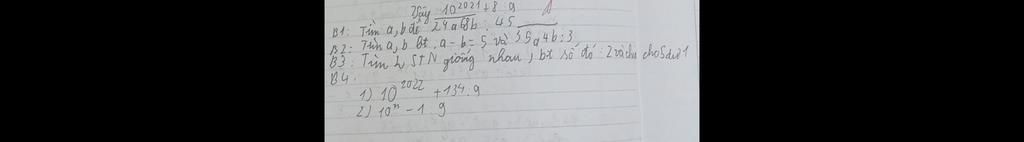 Vậy 10²⁰²¹ + 8 ⋮ 9
B1: Tìm a, b để 24a68b ⋮ 45
B2: Tìm a, b bt. a - b = 5 và 55a4b ⋮ 3
B3: Tìm STN giống nhau, bt số đó ⋮ 2 và chia cho 5 dư 1
B4:
1) 10²⁰²² + 134 ⋮ 9
2) 10ⁿ - 1 ⋮ 9